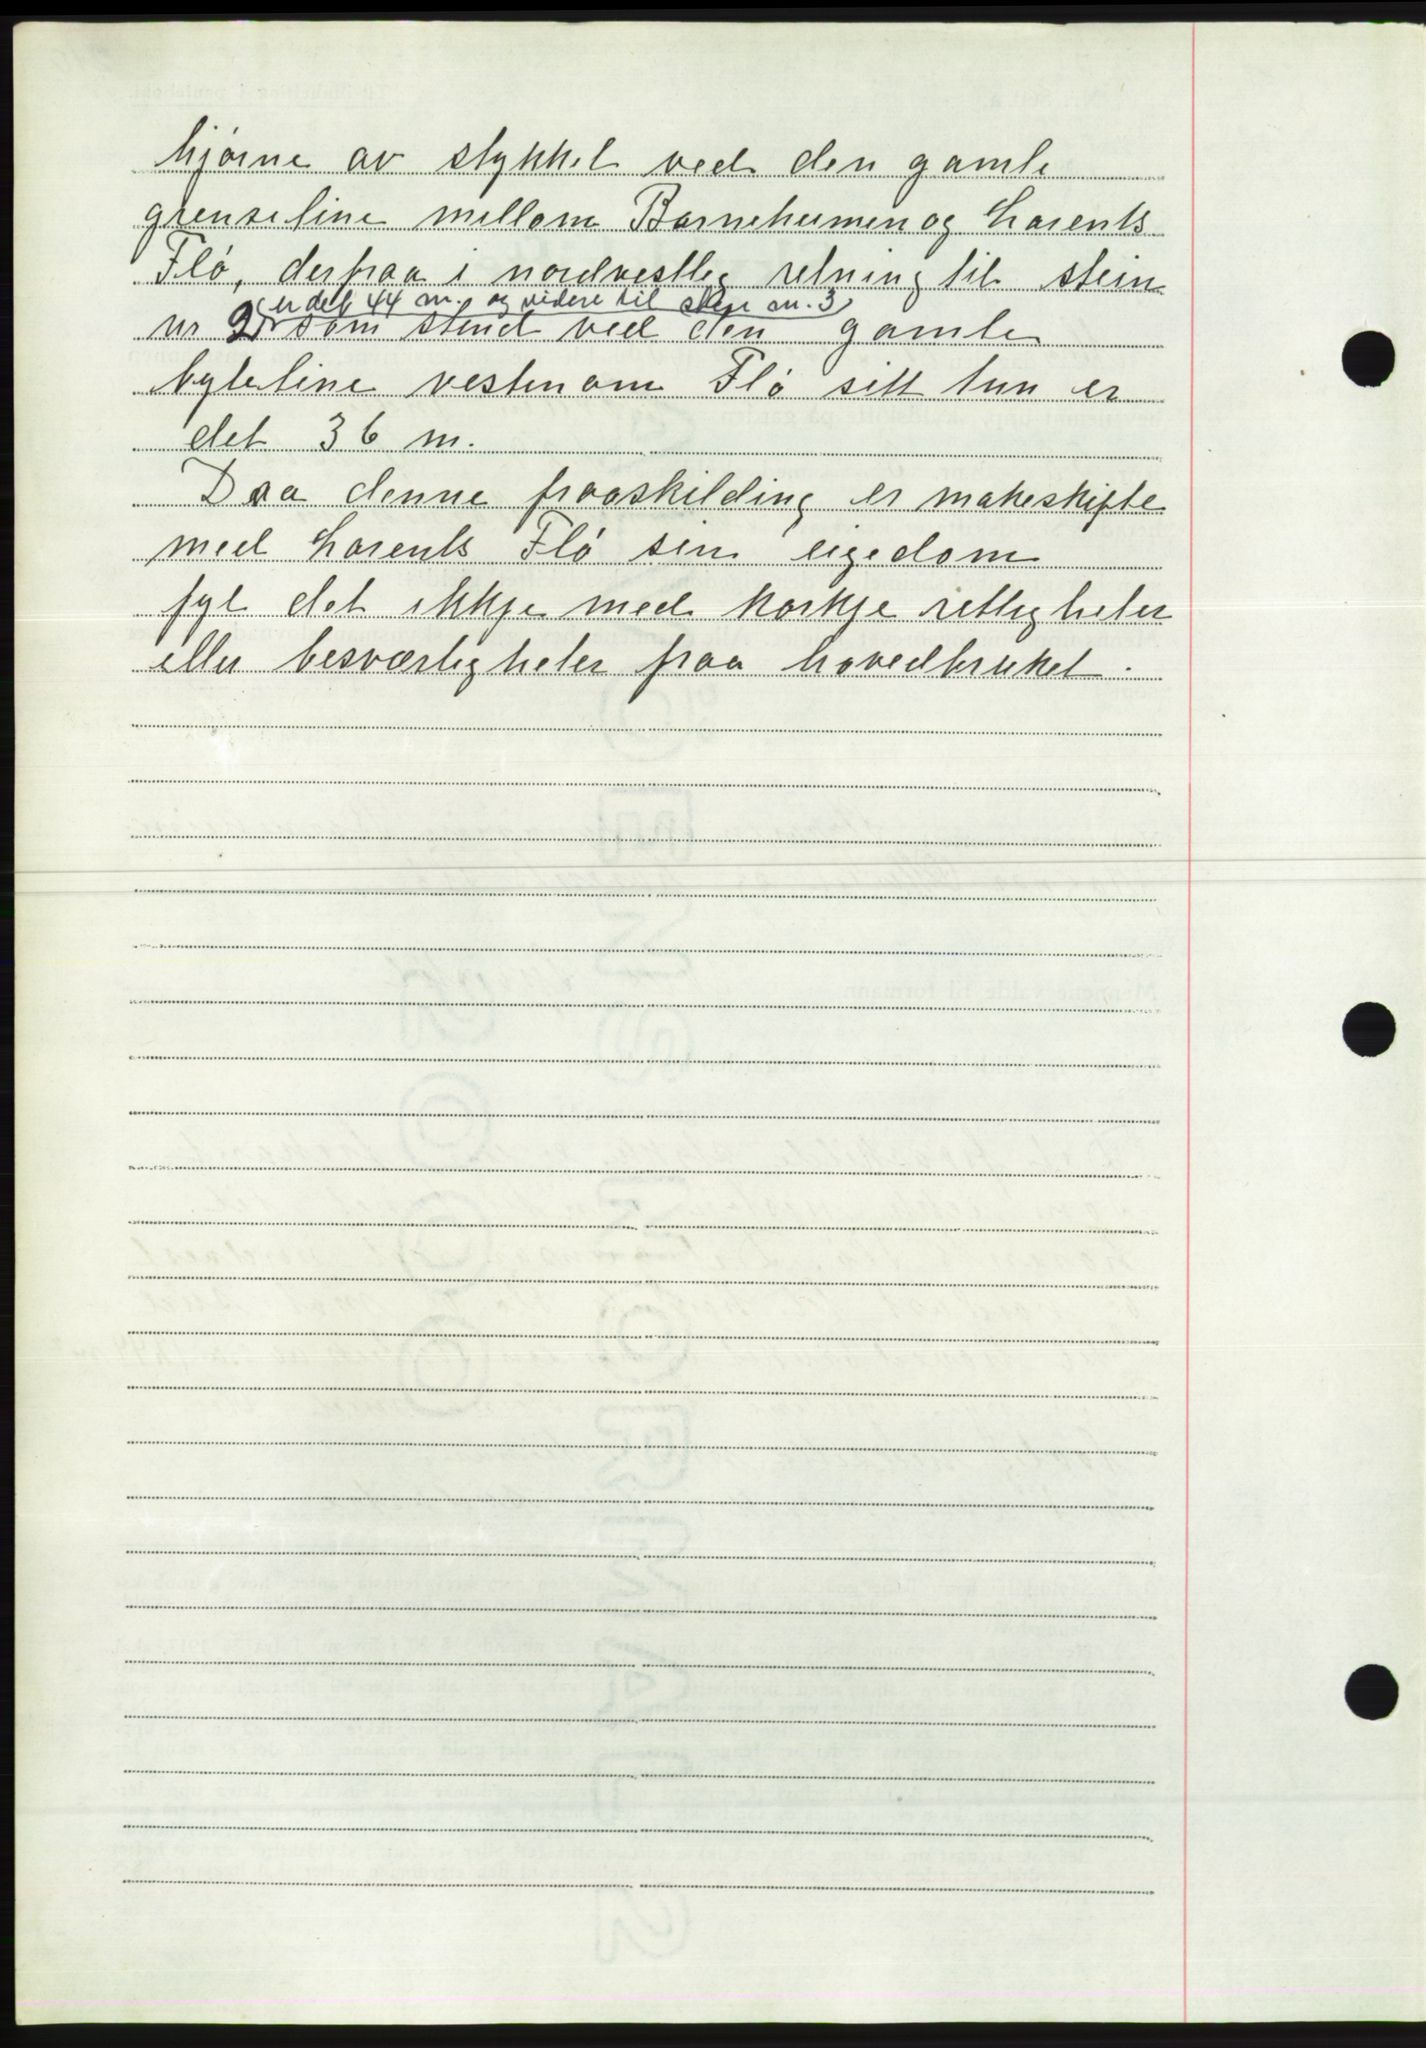 hjørne av stykket ved den gamle
grenseline mellom Barneheimen og Lorents
Flø, derfraa i nordvestleg retning til stein
er det 44 m. og vidare til stein nr. 3
nr 2 som stend ved den gamle
byteline vestenom Flø sitt tun er
det 36 m.
Daa denne fraaskilding er makeskifte
med Lorents Flø sin eigedom
fyl det ikkje med korkje rettigheter
eller besværligheter fraa hovedbruket.